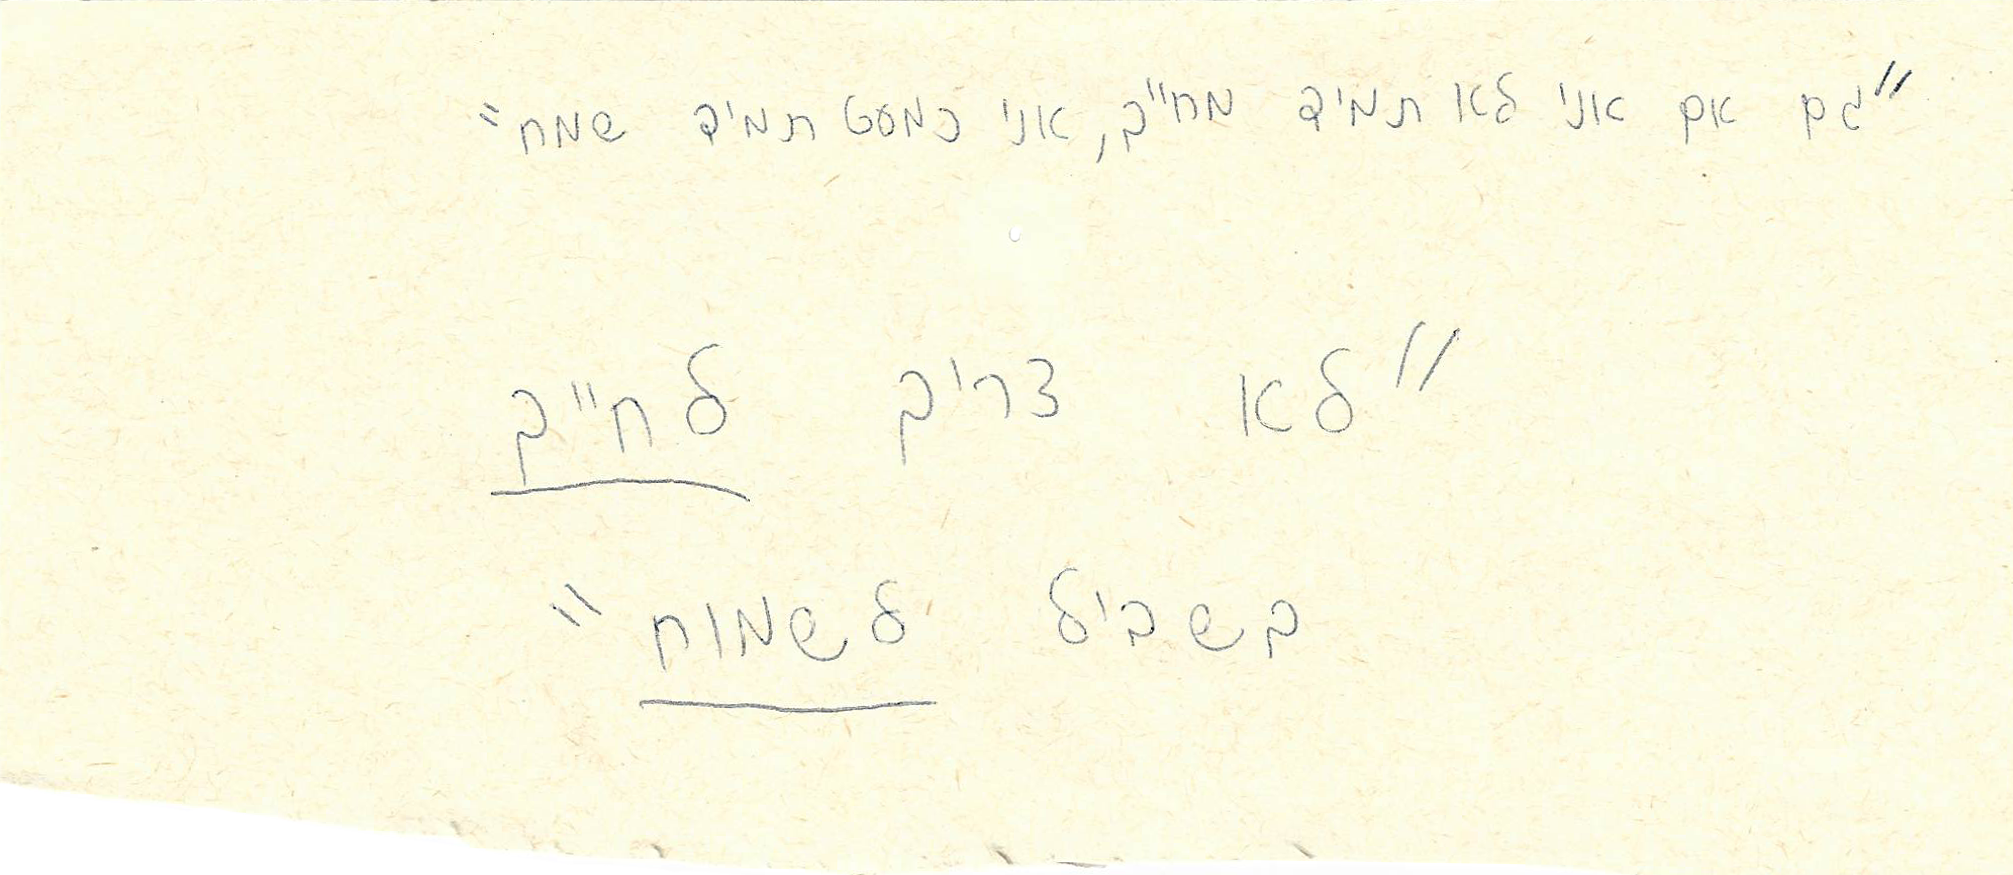 "גם אם אני לא תמיד מח"ך, אני כמעט תמיד שמח"
"לא צריך לח"ך
בשביל לשמוח"